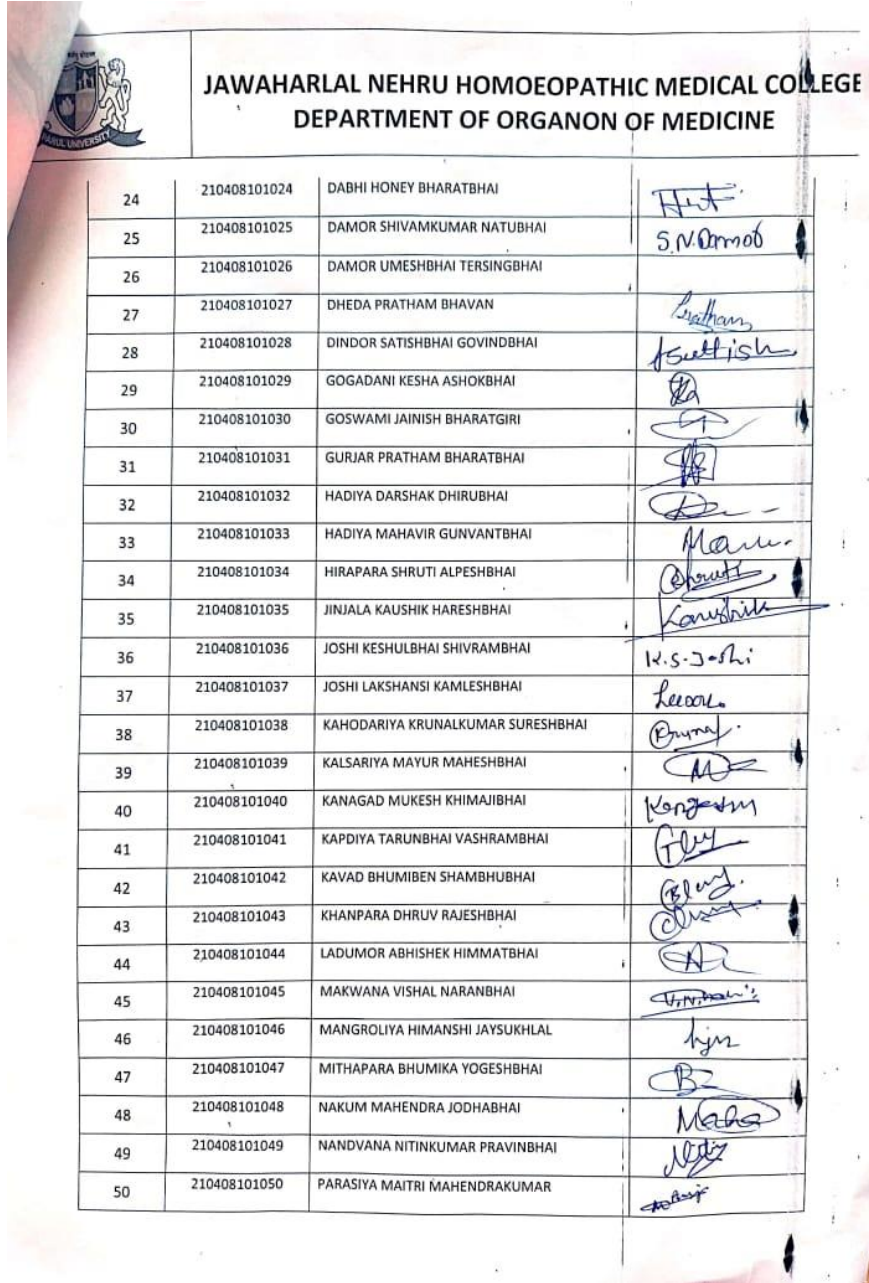 PARUL UNIVERSITY
JAWAHARLAL NEHRU HOMOEOPATHIC MEDICAL COLLEGE
DEPARTMENT OF ORGANON OF MEDICINE
24 210408101024 DABHI HONEY BHARATBHAI
25 210408101025 DAMOR SHIVAMKUMAR NATUBHAI S.N.Damor
26 210408101026 DAMOR UMESHBHAI TERSINGBHAI
27 210408101027 DHEDA PRATHAM BHAVAN Pratham
28 210408101028 DINDOR SATISHBHAI GOVINDBHAI
29 210408101029 GOGADANI KESHA ASHOKBHAI
30 210408101030 GOSWAMI JAINISH BHARATGIRI
31 210408101031 GURJAR PRATHAM BHARATBHAI
32 210408101032 HADIYA DARSHAK DHIRUBHAI
33 210408101033 HADIYA MAHAVIR GUNVANTBHAI
34 210408101034 HIRAPARA SHRUTI ALPESHBHAI
35 210408101035 JINJALA KAUSHIK HARESHBHAI
36 210408101036 JOSHI KESHULBHAI SHIVRAMBHAI K.S.Joshi
37 210408101037 JOSHI LAKSHANSI KAMLESHBHAI
38 210408101038 KAHODARIYA KRUNALKUMAR SURESHBHAI Krunal
39 210408101039 KALSARIYA MAYUR MAHESHBHAI
40 210408101040 KANAGAD MUKESH KHIMAJIBHAI
41 210408101041 KAPDIYA TARUNBHAI VASHRAMBHAI
42 210408101042 KAVAD BHUMIBEN SHAMBHUBHAI
43 210408101043 KHANPARA DHRUV RAJESHBHAI
44 210408101044 LADUMOR ABHISHEK HIMMATBHAI
45 210408101045 MAKWANA VISHAL NARANBHAI
46 210408101046 MANGROLIYA HIMANSHI JAYSUKHLAL hjm
47 210408101047 MITHAPARA BHUMIKA YOGESHBHAI
48 210408101048 NAKUM MAHENDRA JODHABHAI Maha
49 210408101049 NANDVANA NITINKUMAR PRAVINBHAI
50 210408101050 PARASIYA MAITRI MAHENDRAKUMAR